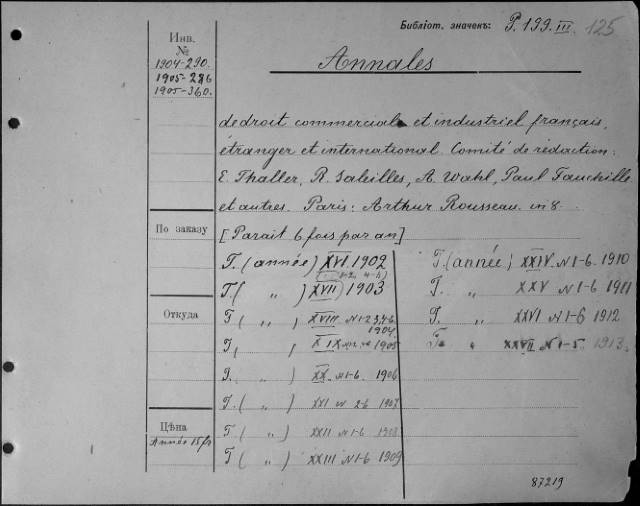 Библіот. значекъ: P. 199. III. 125
Инв.
№
1904-290.
1905-286
1905-360.
Annales
de droit commercial et industriel français,
étranger et international. Comité de rédaction:
E. Thaller, R. Saleilles, A. Wahl, Paul Fauchille
et autres. Paris: Arthur Rousseau. in 8.
По заказу
[Parait 6 fois par an]
T. (année) XVI 1902
T. ( „ ) XVII 1903
T ( „ ) XVIII N 1-2,3,4,6 1904
T, „ ) XIX 1905
T. ( „ ) XX. N 1-6. 1906
T. ( „ ) XXI N 2-6 1907
T ( „ ) XXII N 1-6 1908
T ( „ ) XXIII N 1-6 1909
T. (année) XXIV. N 1-6. 1910
T. „ XXV N 1-6 1911
T. „ XXVI N 1-6 1912
T. „ XXVII N 1-5. 1913.
Откуда
Цѣна
Année 15 fr
87219